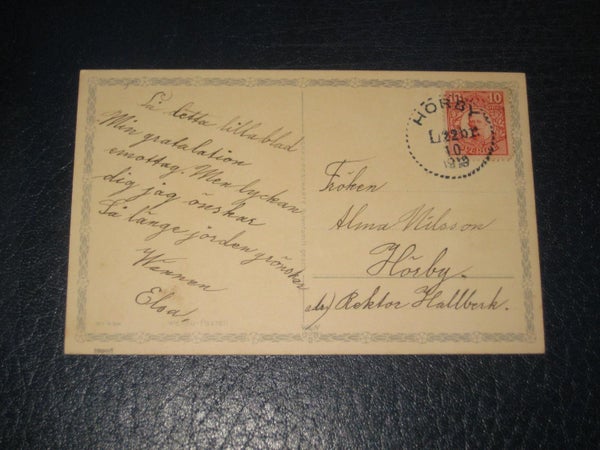 På detta lilla blad
Min gratulation
emottag. Men lyckan
dig jag önskar
Så länge jorden grönskar
Wännen
Elsa.
10
HÖRBY
LBR
22
10
Fröken
Alma Nilsson
Hörby.
adr) Rektor Hallberk.